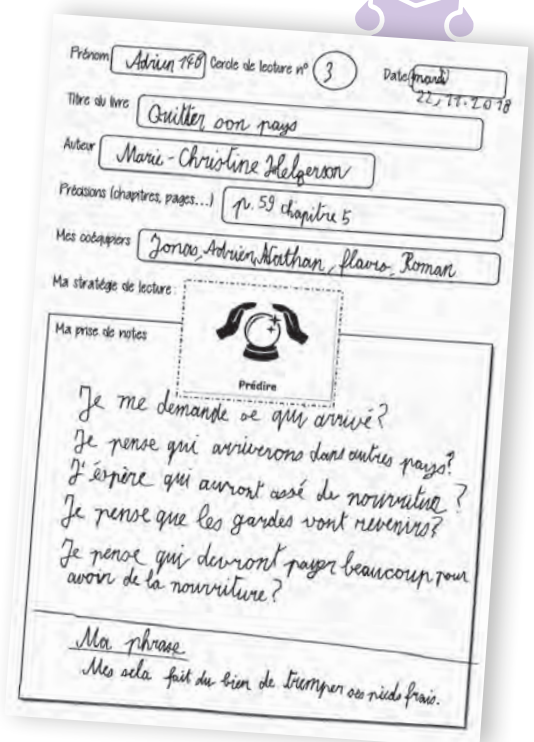 Prénom Adrien 7H8 Cercle de lecture n° 3 Date (mardi)
22.11.2018
Titre du livre Quitter son pays
Auteur Marie-Christine Helgerson
Précisions (chapitres, pages...) p. 59 chapitre 5
Mes coéquipiers Jonas, Adrien, Nathan, flavio, Roman
Ma stratégie de lecture :
Prédire
Ma prise de notes
Je me demande se qui arrivé?
Je pense qui arriverons dans autres pays?
J'éspère qui auront assé de nourritur ?
Je pense que les gardes vont revenirs?
Je pense qui devront payer beaucoup pour
avoir de la nourriture?
Ma phrase
Mes sela fait du bien de tremper ses pieds frais.